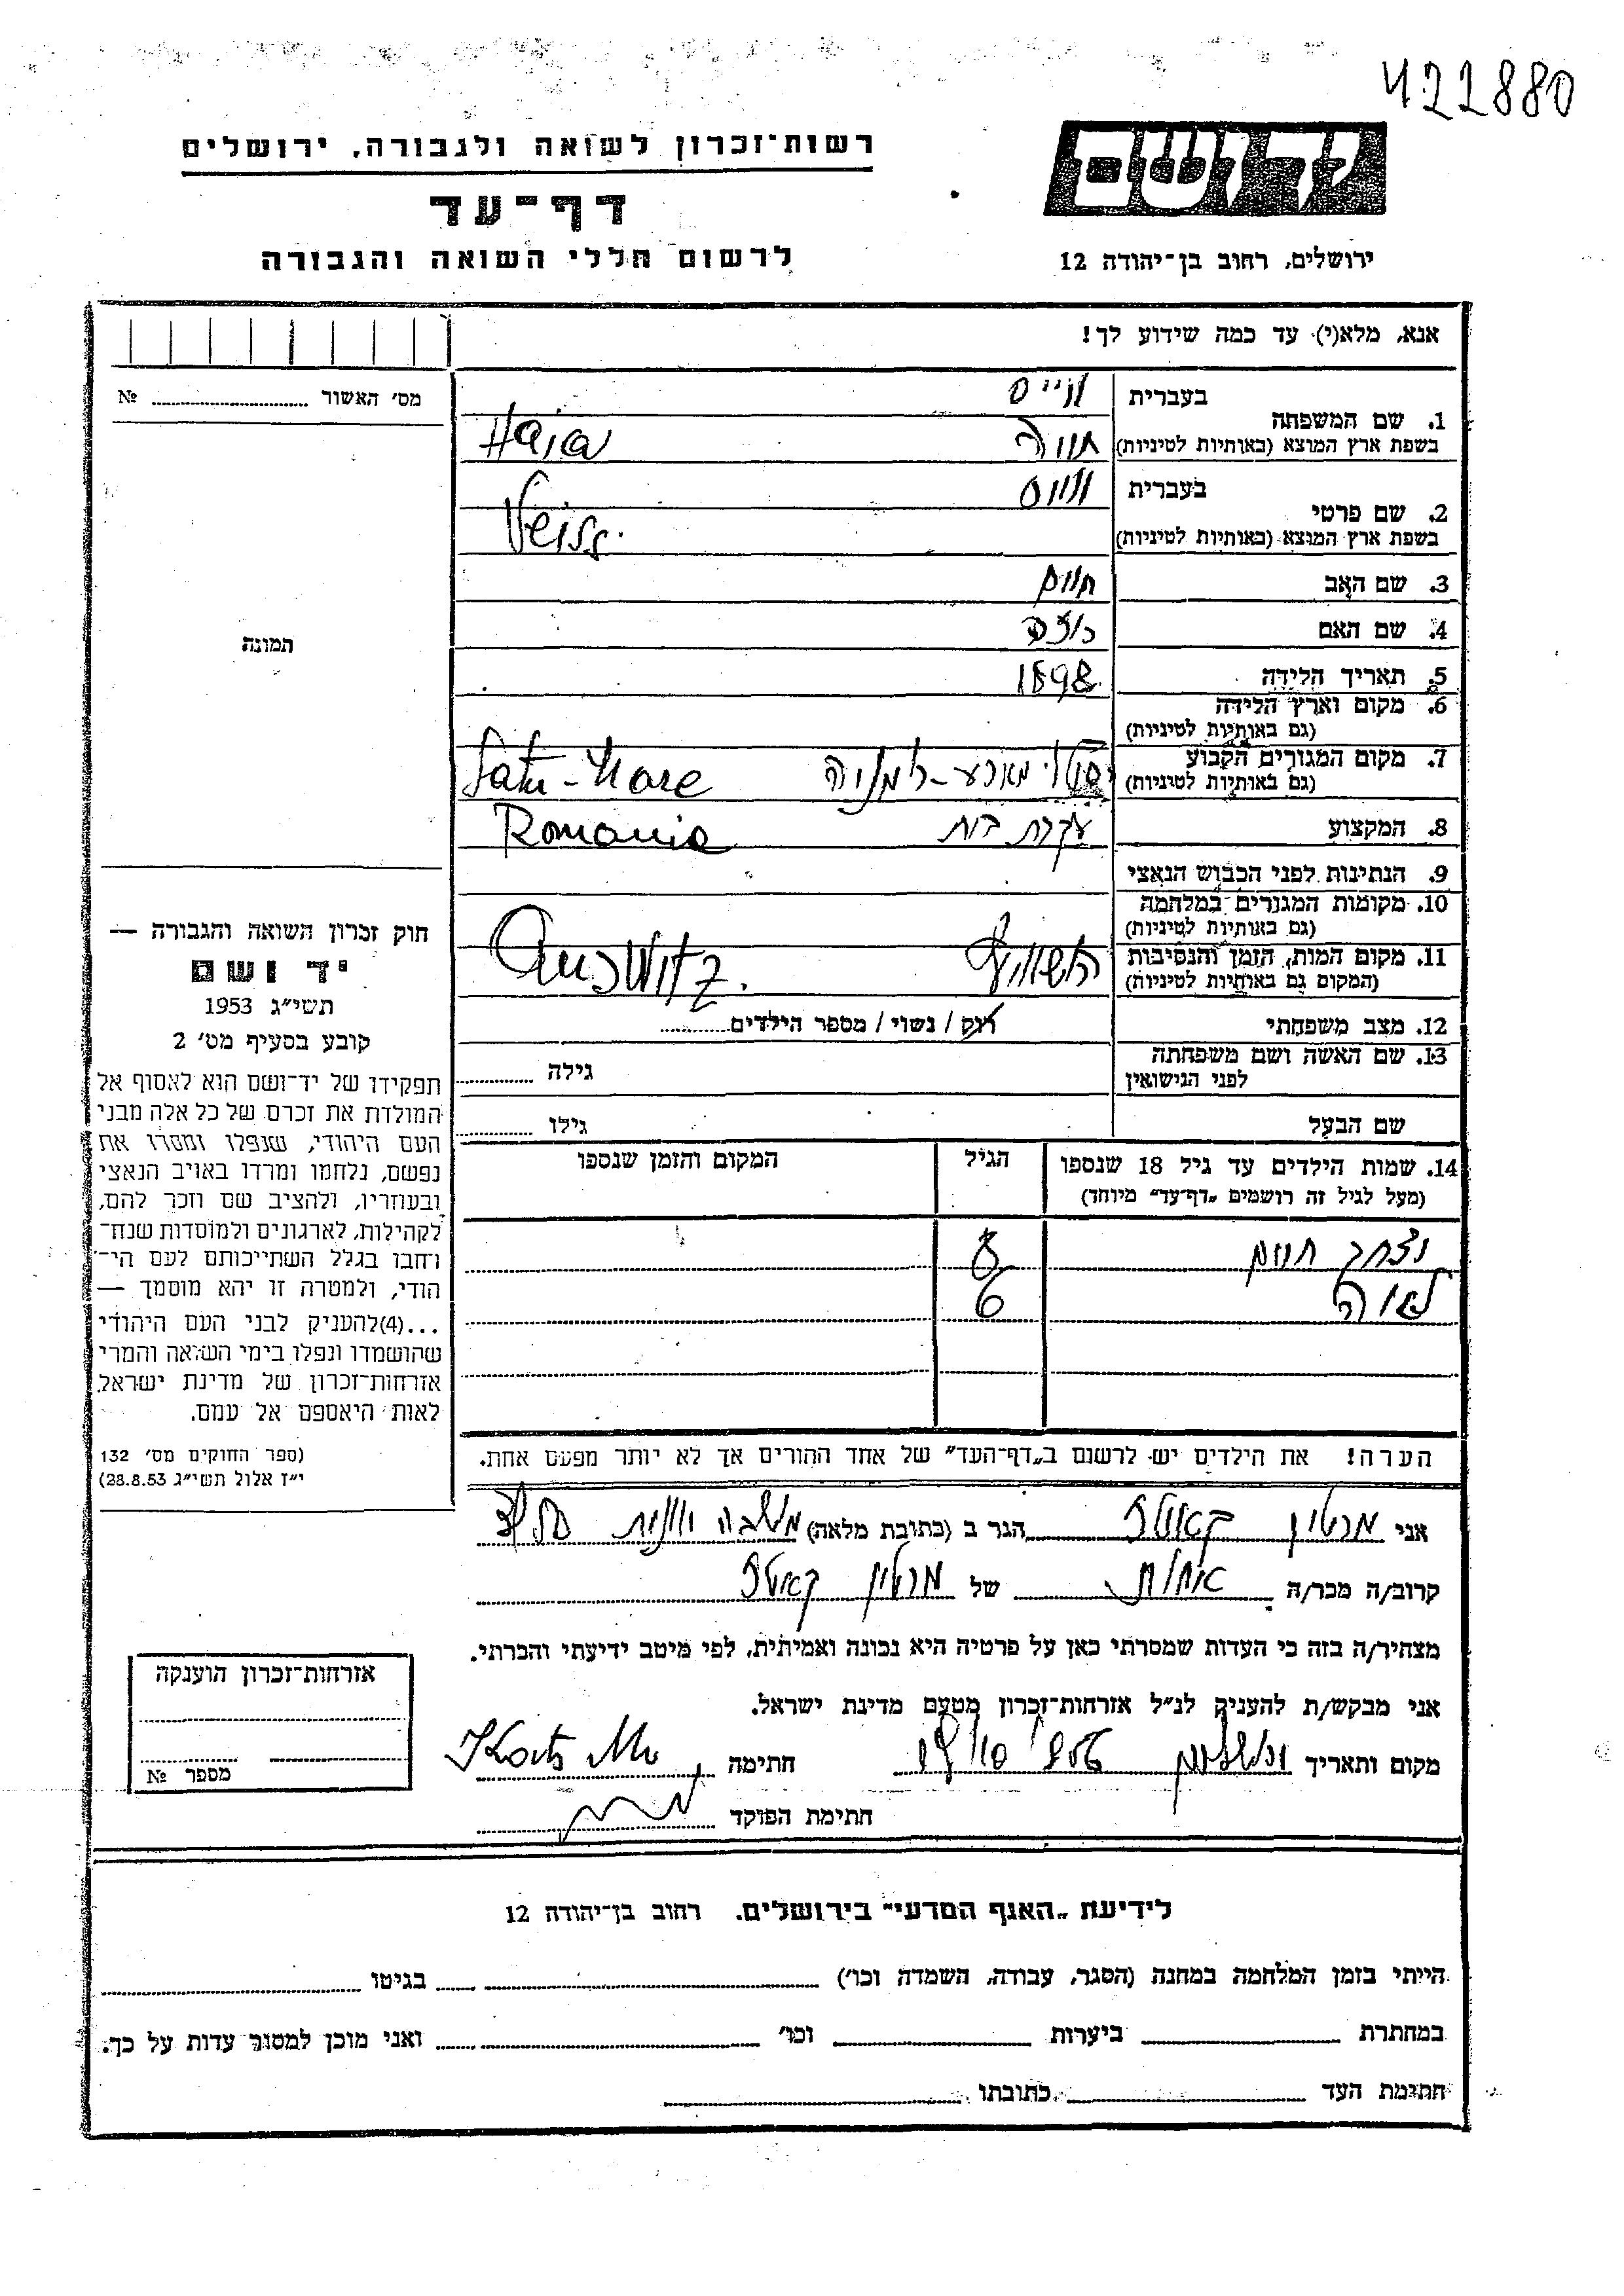 422880
יד ושם
רשות־זכרון לשואה ולגבורה, ירושלים
דף־עד
לרשום חללי השואה והגבורה
ירושלים, רחוב בן־יהודה 12
אנא, מלא(י) עד כמה שידוע לך!
מס' האשור № 
1. שם המשפחה
בעברית
וייס
בשפת ארץ המוצא (באותיות לטיניות)
חיה Haia
2. שם פרטי
בעברית
וייס
בשפת ארץ המוצא (באותיות לטיניות)
Veiss.
3. שם האב
חיים
4. שם האם
תמונה
5. תאריך הלידה
1898
6. מקום וארץ הלידה
(גם באותיות לטיניות)
7. מקום המגורים הקבוע
(גם באותיות לטיניות)
סטו מארע-רומניה Satu-Mare
8. המקצוע
עקרת בית Romania
9. הנתינות לפני הכבוש הנאצי
10. מקומות המגורים במלחמה
(גם באותיות לטיניות)
11. מקום המות, הזמן והנסיבות
(המקום גם באותיות לטיניות)
Auswitz.
12. מצב משפחתי
רוק / נשוי / מספר הילדים
13. שם האשה ושם משפחתה
לפני הנישואין
גילה
שם הבעל
גילו
14. שמות הילדים עד גיל 18 שנספו
(מעל לגיל זה רושמים „דף־עד" מיוחד)
הגיל
המקום והזמן שנספו
יצחק חיים 8
לאה 6
הערה! את הילדים יש לרשום ב„דף־העד" של אחד ההורים אך לא יותר מפעם אחת.
חוק זכרון השואה והגבורה —
יד ושם
תשי"ג 1953
קובע בסעיף מס' 2
תפקידו של יד־ושם הוא לאסוף אל
המולדת את זכרם של כל אלה מבני
העם היהודי, שנפלו ומסרו את
נפשם, נלחמו ומרדו באויב הנאצי
ובעוזריו, ולהציב שם וזכר להם,
לקהילות, לארגונים ולמוסדות שנח־
רחבו בגלל השתייכותם לעם הי־
הודי, ולמטרה זו יהא מוסמך —
...(4)להעניק לבני העם היהודי
שהושמדו ונפלו בימי השואה והמרי
אזרחות־זכרון של מדינת ישראל,
לאות היאספם אל עמם.
(ספר החוקים מס' 132
י"ז אלול תשי"ג 28.8.53)
אני מרטין קאטץ הגר ב (כתובת מלאה)
קרוב/ה מכר/ה אחות של מרטין קאטץ
מצהיר/ה בזה כי העדות שמסרתי כאן על פרטיה היא נכונה ואמיתית, לפי מיטב ידיעתי והכרתי.
אני מבקש/ת להעניק לנ"ל אזרחות־זכרון מטעם מדינת ישראל.
מקום ותאריך ירושלים חתימה Katz
חתימת הפוקד
אזרחות־זכרון הוענקה
מספר №
לידיעת „האגף המדעי" בירושלים. רחוב בן־יהודה 12
הייתי בזמן המלחמה במחנה (הסגר, עבודה, השמדה וכו') בגיטו
במחתרת ביערות וכו' ואני מוכן למסור עדות על כך.
חתימת העד כתובתו